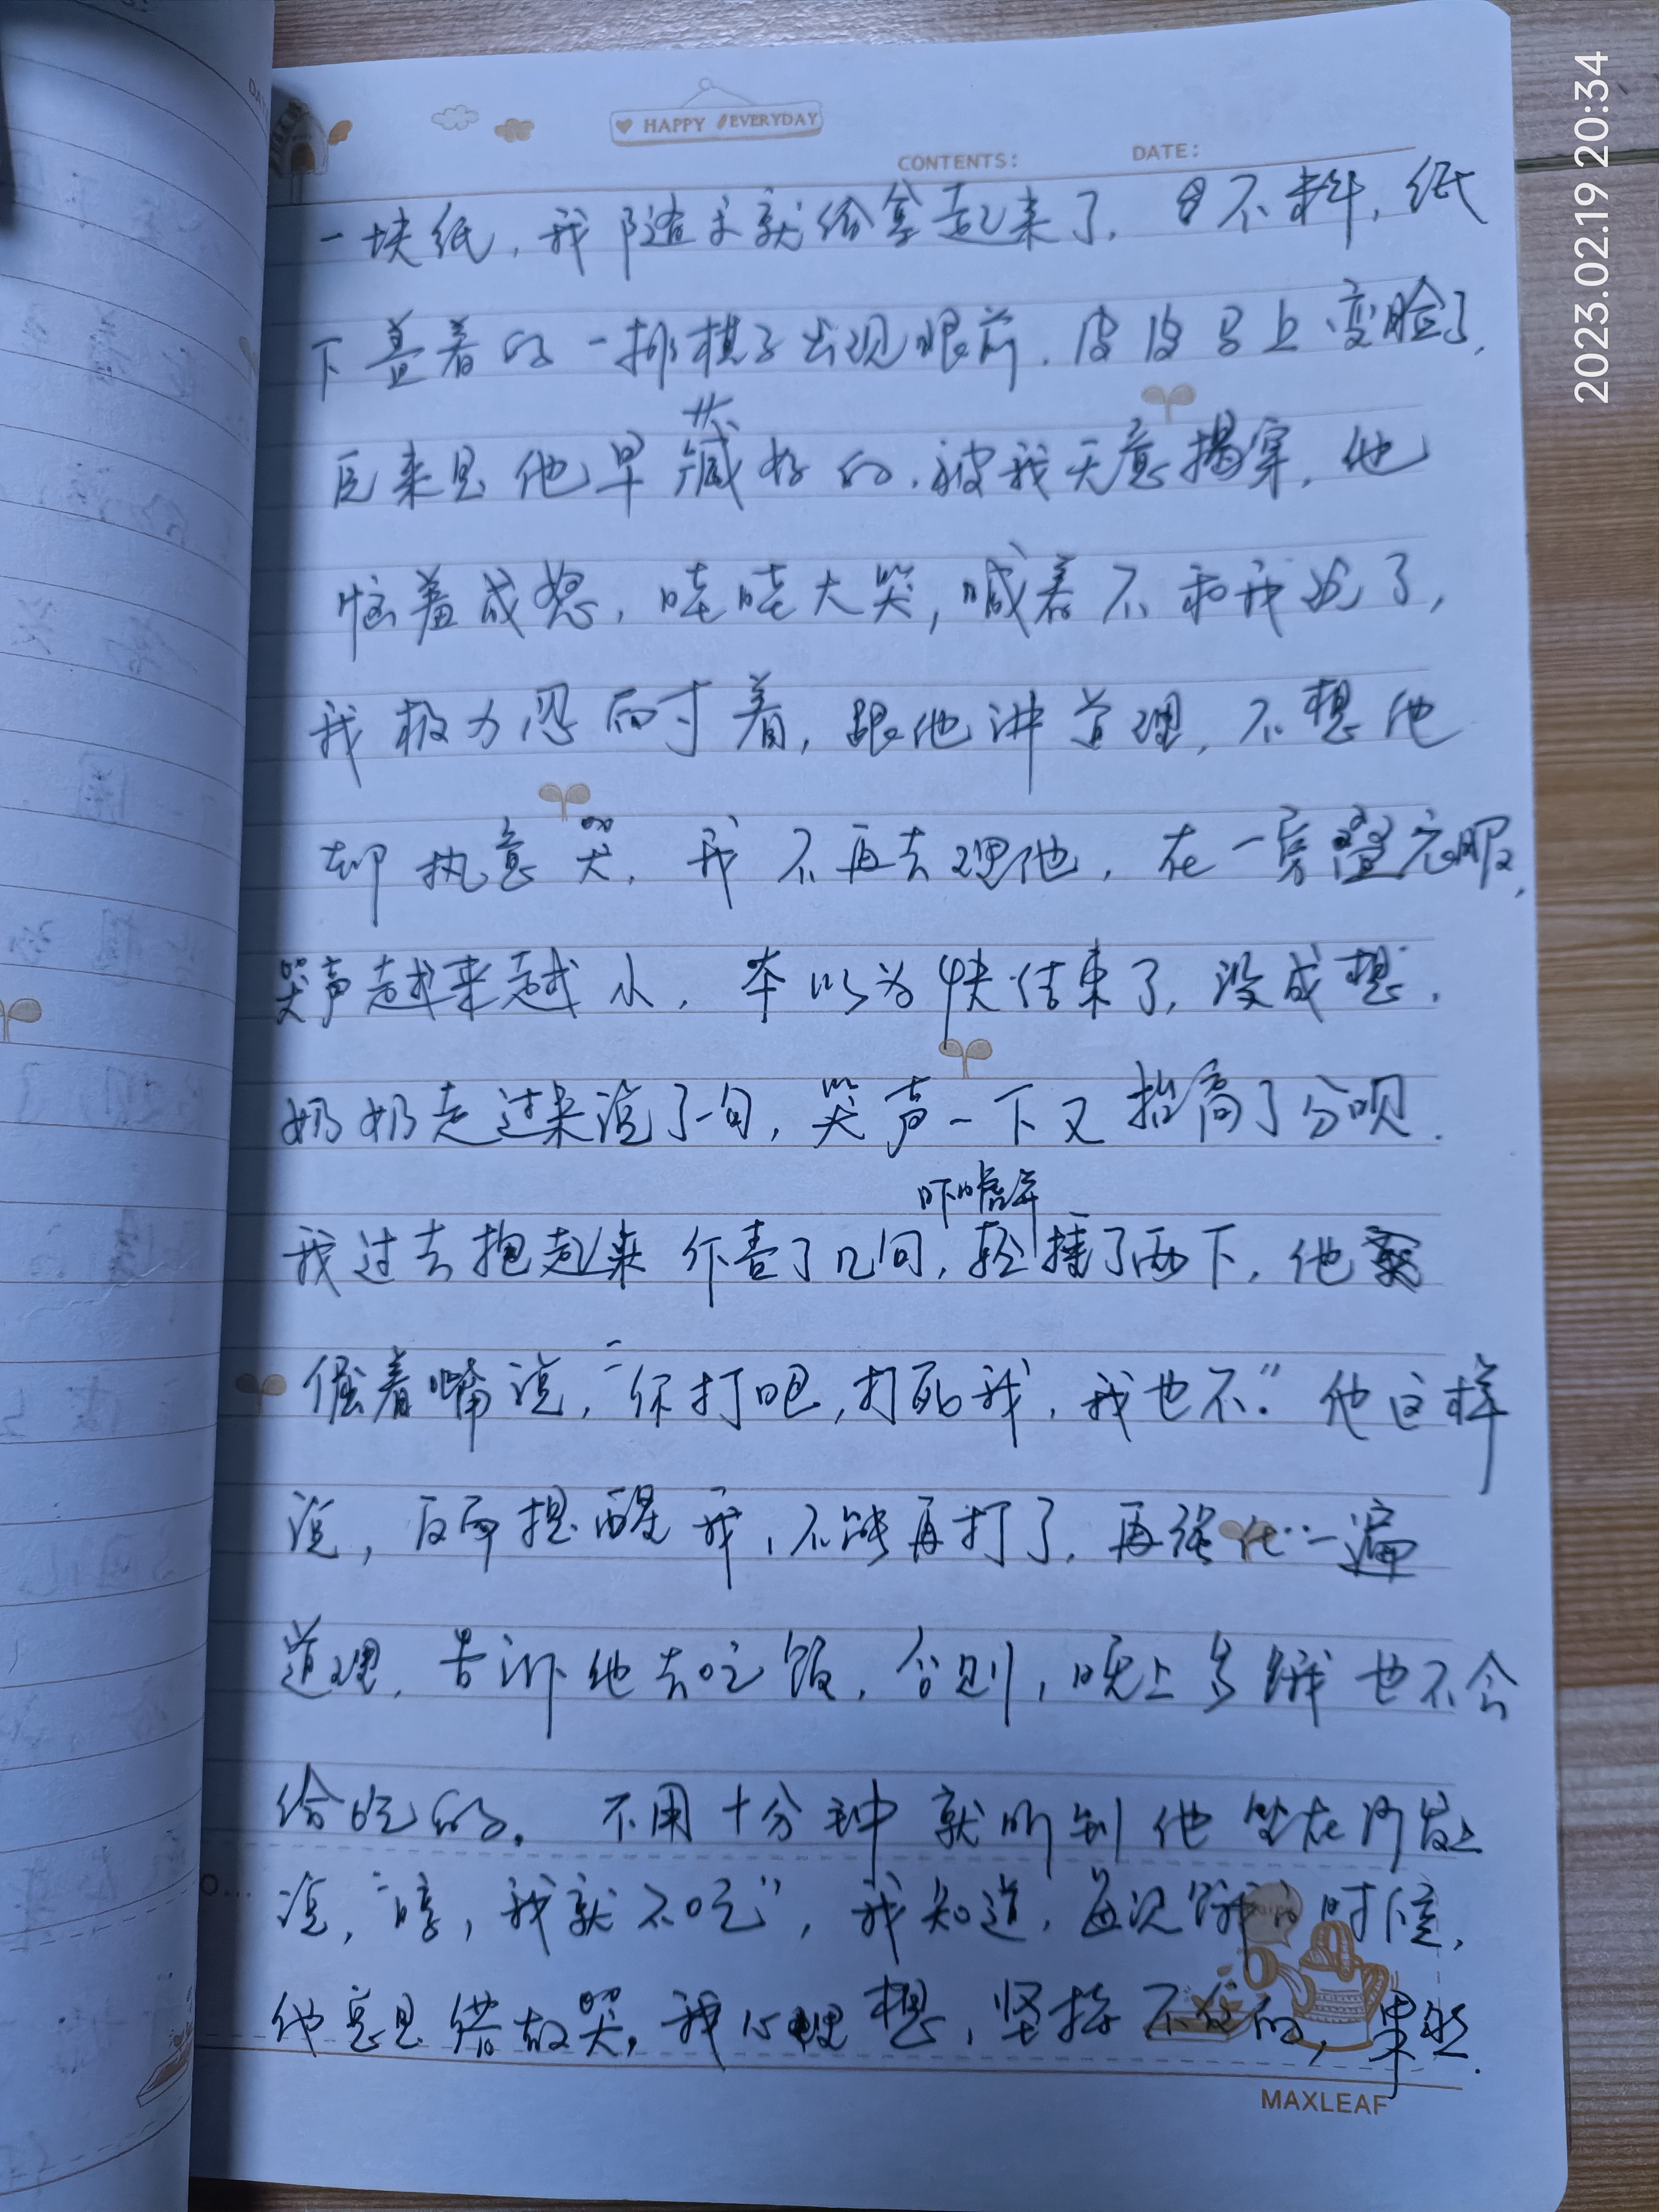 HAPPY EVERYDAY
CONTENTS: DATE:
2023.02.19 20:34
一块纸,我随手就给拿起来了,不料,纸
下盖着的一排棋子出现眼前,皮皮马上变脸了,
原来是他早藏好的,被我无意揭穿,他
恼羞成怒,哇哇大哭,喊着不和我玩了,
我极力忍耐着,跟他讲道理,不想他
却执意哭,我不再去理他,在一旁叠衣服,
哭声越来越小,本以为快结束了,没成想,
奶奶走过来说了一句,哭声一下又抬高了分呗.
吓唬
我过去抱起来 了几句,轻揍了两下,他
倔着嘴说,“你打吧,打死我,我也不.”他这样
说,反而提醒我,不能再打了,再强化一遍
道理,告诉他去吃饭,否则,晚上多饿也不会
给吃的。不用十分钟就听到他坐在沙发上
说,“哼,我就不吃”,我知道,每次饿的时候,
他总是借故哭,我心理想,坚持不住的,果然.
MAXLEAF